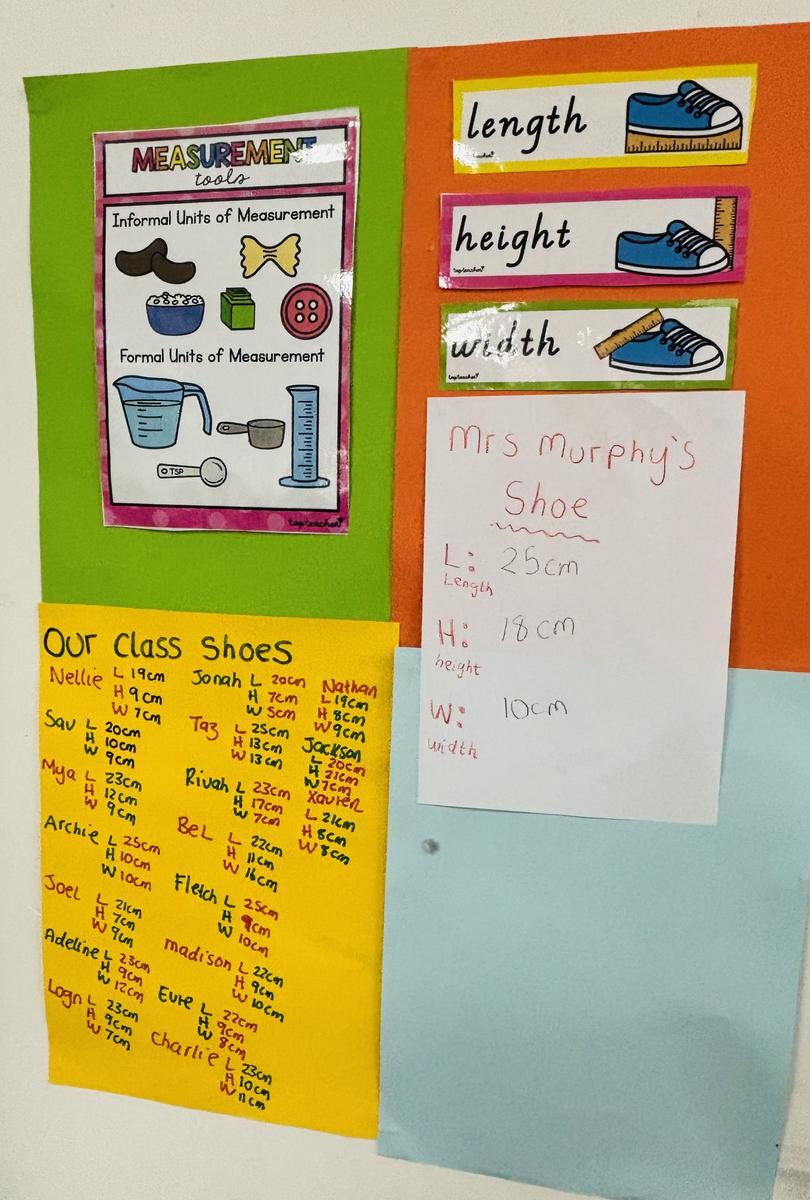 MEASUREMENT
tools
Informal Units of Measurement
Formal Units of Measurement
TSP
topteacher
length
height
topteacher
width
topteacher
Mrs Murphy's
Shoe
L: 25cm
Length
H: 18cm
height
W: 10cm
width
Our Class Shoes
Nellie L 19cm
H 9cm
W 7cm
Sav L 20cm
H 10cm
W 9cm
Mya L 23cm
H 12cm
W 9cm
Archie L 25cm
H 10cm
W 10cm
Joel L 21cm
H 7cm
W 9cm
Adeline L 23cm
H 9cm
W 12cm
Logn L 23cm
H 9cm
W 7cm
Jonah L 20cm
H 7cm
W 5cm
Taz L 25cm
H 13cm
W 13cm
Rivah L 23cm
H 17cm
W 7cm
Bel L 22cm
H 11cm
W 16cm
Fletch L 25cm
H 9cm
W 10cm
madison L 22cm
H 9cm
W 10cm
Evre L 22cm
H 9cm
W 8cm
Charlie L 23cm
H 10cm
W 11cm
Nathan
L 19cm
H 8cm
W 9cm
Jackson
L 20cm
H 21cm
W 7cm
Xavier
L 21cm
H 8cm
W 8cm